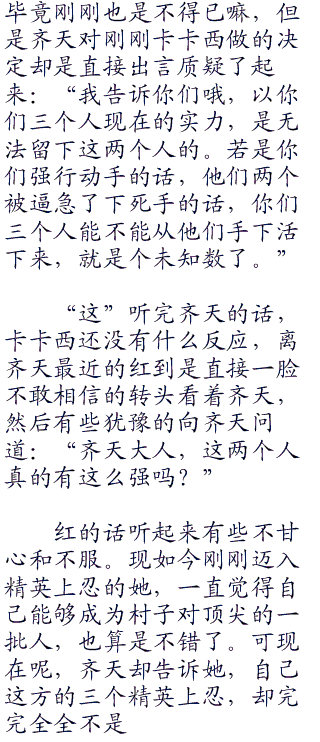 毕竟刚刚也是不得已嘛，但
是齐天对刚刚卡卡西做的决
定却是直接出言质疑了起
来：“我告诉你们哦，以你
们三个人现在的实力，是无
法留下这两个人的。若是你
们强行动手的话，他们两个
被逼急了下死手的话，你们
三个人能不能从他们手下活
下来，就是个未知数了。”
“这”听完齐天的话，
卡卡西还没有什么反应，离
齐天最近的红到是直接一脸
不敢相信的转头看着齐天，
然后有些犹豫的向齐天问
道：“齐天大人，这两个人
真的有这么强吗？”
红的话听起来有些不甘
心和不服。现如今刚刚迈入
精英上忍的她，一直觉得自
己能够成为村子对顶尖的一
批人，也算是不错了。可现
在呢，齐天却告诉她，自己
这方的三个精英上忍，却完
完全全不是